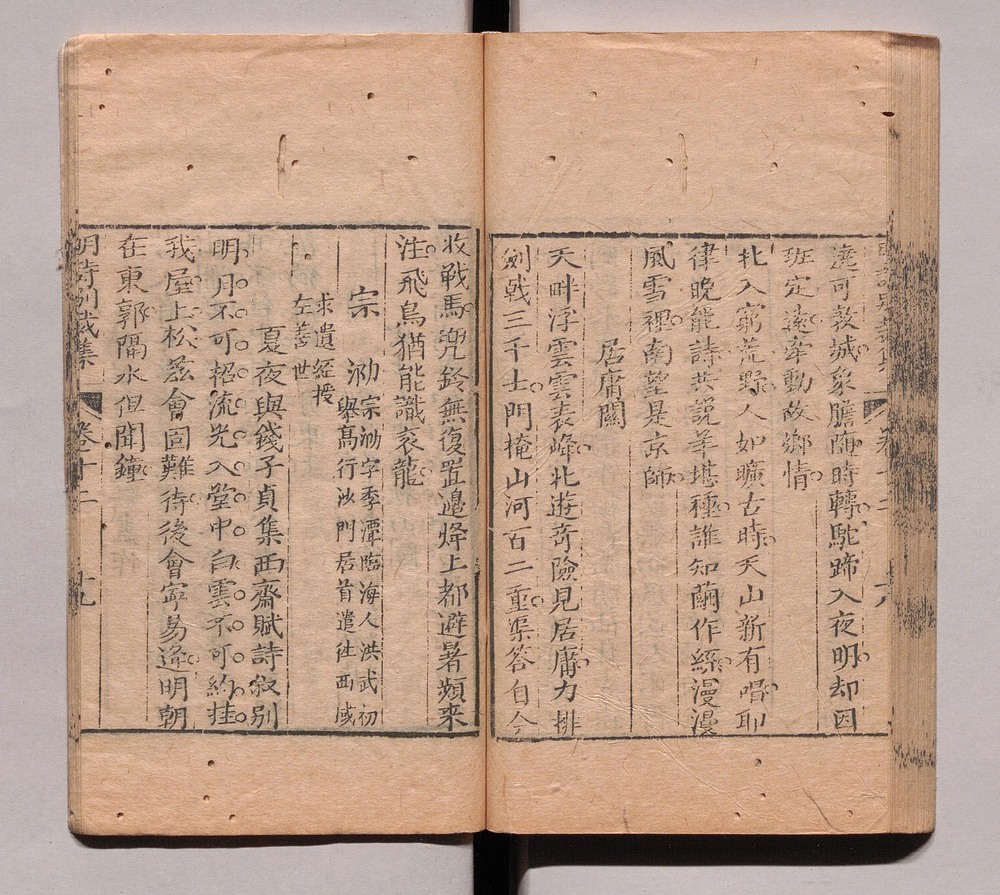 遠可敦城象膽隨時轉駝蹄入夜明却因
班定遠牽動故鄉情
北入窮荒野人如曠古時天山新有唱耶
律晚能詩共說華堪種誰知繭作絲漫漫
風雪裡南望是京師
居庸關
天畔浮雲雲表峰北遊奇險見居庸力排
劍戟三千士門掩山河百二重渠答自今
收戰馬兜鈴無復置邊烽上都避暑頻來
往飛鳥猶能識衮龍
宗泐
宗泐字季潭臨海人洪武初
舉高行沙門居首遣往西域
求遺經授
左善世
夏夜與錢子貞集西齋賦詩叙別
明月不可招流光入堂中白雲不可約挂
我屋上松茲會固難待後會寧易逢明朝
在東郭隔水但聞鐘
明詩別裁集
卷十二
十九